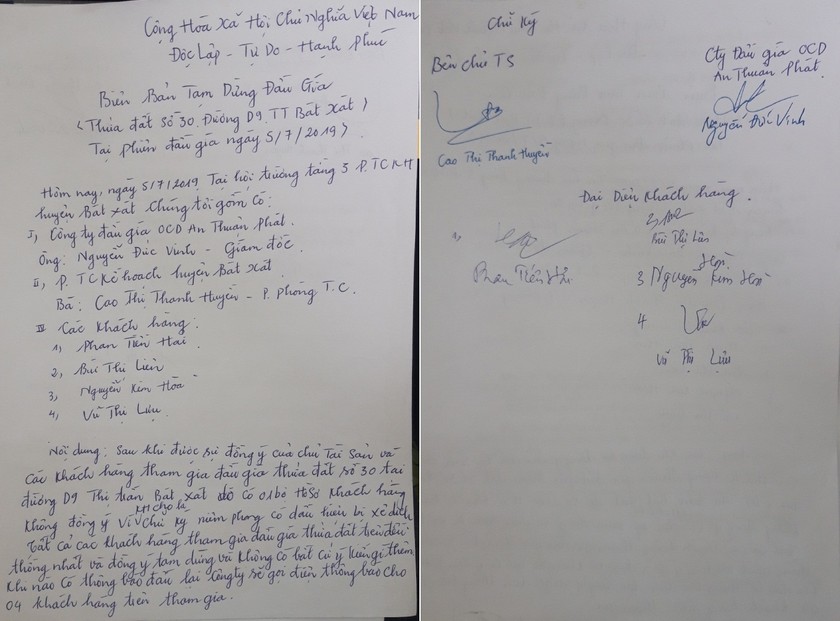 Cộng Hòa Xã Hội Chủ Nghĩa Việt Nam
Độc Lập - Tự Do - Hạnh Phúc
Biên Bản Tạm Dừng Đấu Giá
(Thửa đất số 30. Đường D9. TT Bát Xát)
Tại phiên đấu giá ngày 5/7/2019).
Hôm nay, ngày 5/7/2019 Tại hội trường tầng 3 P. TCKH
huyện Bát Xát. Chúng tôi gồm có:
I, Công ty đấu giá OCD An Thuận Phát.
Ông: Nguyễn Đức Vinh - Giám đốc.
II, P. TC Kế hoạch huyện Bát Xát.
Bà: Cao Thị Thanh Huyền - P. Phòng T.C.
III Các khách hàng:
1, Phan Tiến Hải.
2, Bùi Thị Liên
3, Nguyễn Kim Hoa
4, Vũ Thị Lựu.
Nội dung: Sau khi được sự đồng ý của chủ Tài Sản và
các khách hàng tham gia đấu giá thửa đất số 30 tại
đường D9 Thị trấn Bát Xát do có 01 bộ Hồ Sơ khách hàng
không đồng ý Vì KH cho là chữ ký niêm phong có dấu hiệu bị xê dịch
Tất cả các khách hàng tham gia đấu giá thửa đất trên đều
thống nhất và đồng ý tạm dừng và không có bất cứ ý kiến gì thêm
Khi nào có thông báo đấu lại công ty sẽ gọi điện thông báo cho
04 khách hàng trên tham gia.
Chữ Ký
Bên chủ TS
Cao Thị Thanh Huyền
Cty Đấu giá OCD
An Thuận Phát.
Nguyễn Đức Vinh
Đại Diện Khách hàng.
1,
Phan Tiến Hải
2
Bùi Thị Liên
Hoa
3 Nguyễn Kim Hoa
4
Vũ Thị Lựu